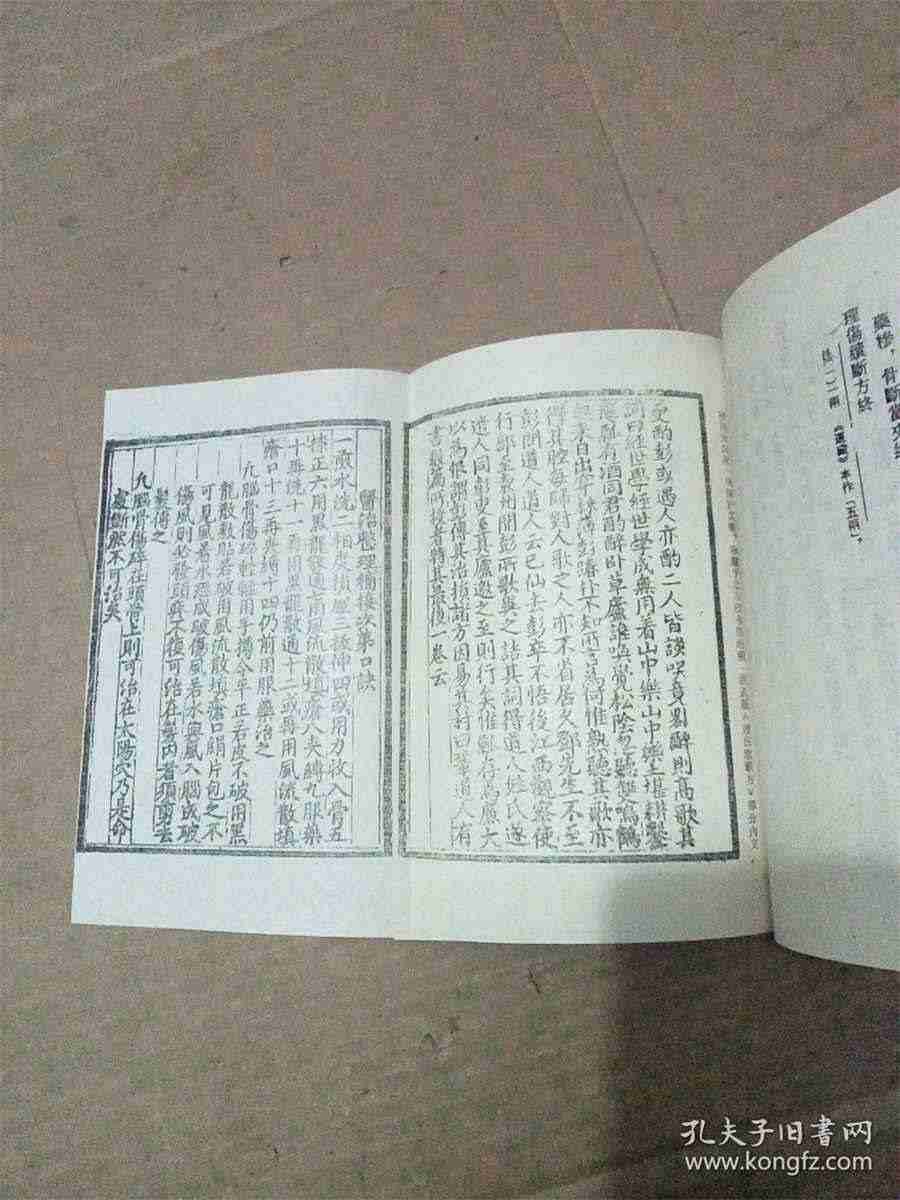 理傷續斷方終
更酌彭或遇人亦酌二人皆談笑竟日醉則高歌其
詞曰經世學經世學成無用着山中樂山中樂土堪耕鑿
瓢有酒同君酌醉卧草廬誰喚覺松陰忽聽雙鳴鶴
得其腔每歸對人歌之人亦不省居久鄧先生不至
彭問道人道人云已仙去彭卒不悟後江西觀察使
行部至袁州聞彭所歌異之詰其詞得道人姓氏遂
道人同彭更至其廬邀之至則行矣惟鄧存焉廣大
以為恨謂彭得其治損諸方因易其封曰鞏道人有
書數篇所授者特其最後一卷云
醫治整理補接次第口訣
一煎水洗二相度損處三拔伸四或用力收入骨五
捺正六用黑龍散通七用風流散填瘡八夾縛九服藥
十再洗十一再用黑龍散通十二或再用風流散填
瘡口十三再夾縛十四仍前用服藥治之
凡腦骨傷碎輕輕用手撙令平正若皮不破用黑
龍散敷貼若破用風流散填瘡口絹片包之不
可見風着水恐成破傷風若水與風入腦成破
傷風則必發頭疼不復可治在髮內者須剪去
髮傅之
凡腦骨傷碎在頭骨上則可治在太陽穴乃是命
處斷然不可治矣
孔夫子旧書网
www.kongfz.com